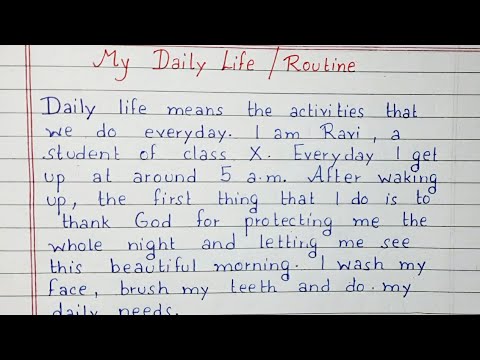 My Daily Life / Routine
Daily life means the activities that
we do everyday. I am Ravi, a
student of class X. Everyday I get
up at around 5 a.m. After waking
up, the first thing that I do is to
thank God for protecting me the
whole night and letting me see
this beautiful morning. I wash my
face, brush my teeth and do my
daily needs.